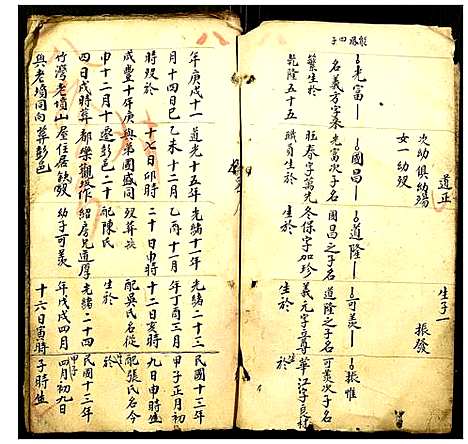 道正
次幼俱幼殤
女一幼歿
生子一
振發
光富
名義方字采
繁生於
乾隆五十五
國昌
光富次子名
旺春字萬先
職員生於
道隆
國昌之子名
冬保字加珍
生於
可羨
道隆之子名
義元字立尊
生於
振惟
可羨次子名
華江字良
年庚戌十一
月十四日巳
時歿於
咸豐十年庚
申十二月十
四日戌時葬
竹灣老墳山
與老墳同向
道光十五年
乙未十二月
十七日卯時
與弟國盛同
遷彭邑二十
都樂觀坡作
屋住居歿
葬彭邑
光緒十二年
乙丙十一月
二十日申時
歿葬
配陳氏
紹房兄道厚
幼子可羨
光緒二十三
年丁酉三月
十二日亥時
配吳氏名從
生於
光緒二十四
年戊戌四月
十六日寅時
民國十三年
甲子正月初
九日申時生
配張氏名今
於
民國十三年
甲子
四月初九日
子時生